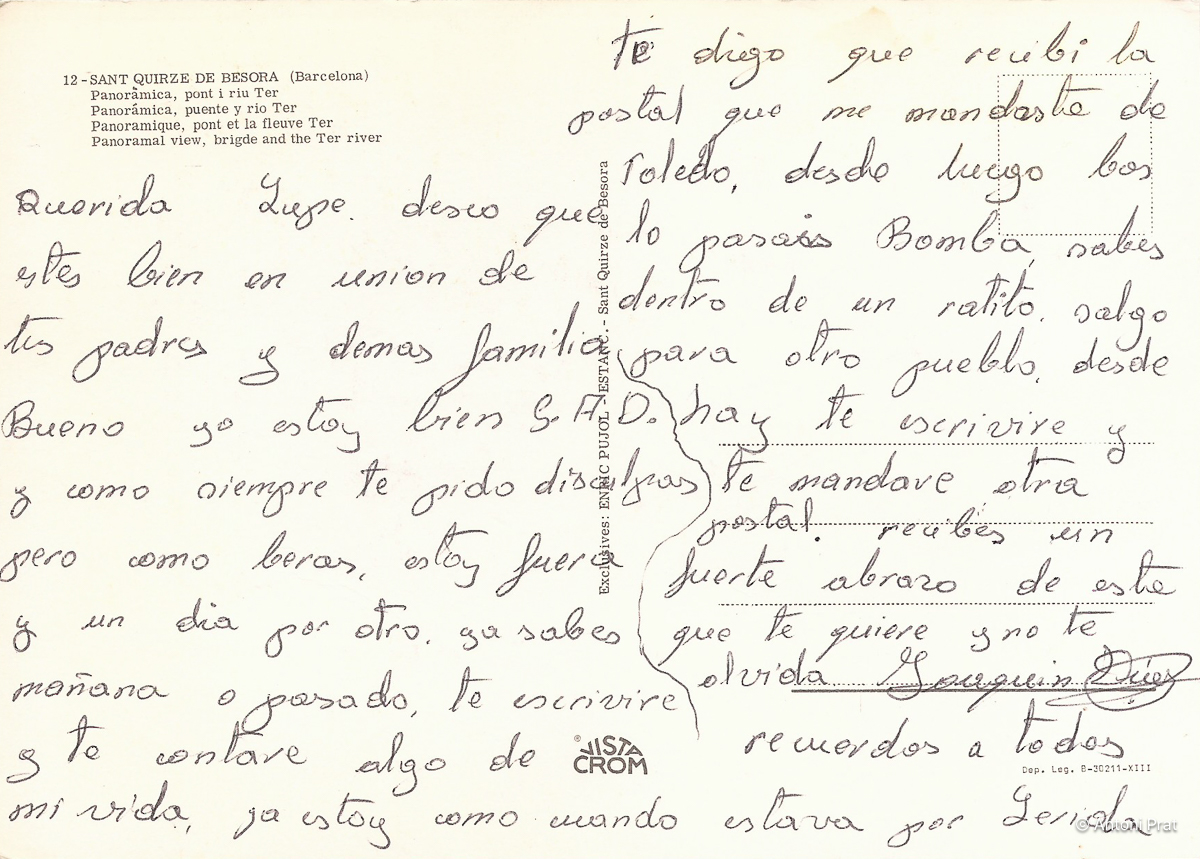 12 - SANT QUIRZE DE BESORA (Barcelona)
Panoràmica, pont i riu Ter
Panorámica, puente y rio Ter
Panoramique, pont et la fleuve Ter
Panoramal view, brigde and the Ter river
Querida Lupe. deseo que
estes bien en union de
tus padres y demas familia
Bueno yo estoy bien G.A.D.
y como siempre te pido disculpas
pero como beras, estoy fuera
y un dia por otro, ya sabes
mañana o pasado, te escrivire
y te contare algo de
mi vida, ya estoy como cuando estava por Lerida
te digo que recibi la
postal que me mandaste de
Toledo, desde luego bos
lo pasais Bomba, sabes
dentro de un ratito, salgo
para otro pueblo, desde
hay te escrivire y
te mandare otra
postal. recibes un
fuerte abrazo de este
que te quiere y no te
olvida Joaquin Diez
recuerdos a todos
Exclusives: ENRIC PUJOL - ESTANC. - Sant Quirze de Besora
® VISTA
CROM
Dep. Leg. B-30211-XIII
© Antoni Prat